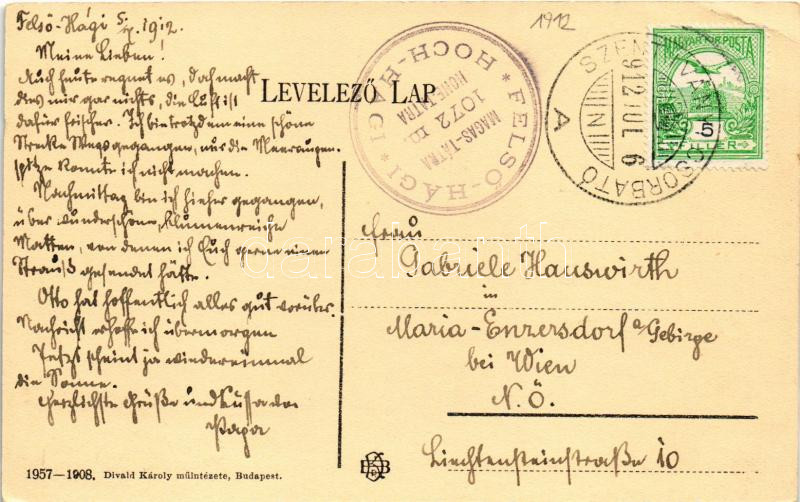 Felső-Hági 5/7. 1912.
1912
Meine Lieben!
Auch heute regnet es, doch macht
das mir gar nichts, die Luft ist
dafür frischer. Ich bin trotzdem eine schöne
Strecke Wegs gegangen, nur die Meeraugen-
spitze konnte ich nicht machen.
Nachmittag bin ich hieher gegangen,
über wunderschöne, blumenreiche
Matten, von denen ich Euch gerne einen
Strauß gesendet hätte.
Otto hat hoffentlich alles gut vorüber.
Nachricht erhoffe ich übermorgen
Jetzt scheint ja wieder einmal
die Sonne.
Herzlichste Grüße und Küsse von
Papa
LEVELEZŐ LAP
* FELSŐ-HÁGI * HOCH-HÁGI
MAGAS-TÁTRA
1072 m
HOHE TÁTRA
MAGYAR KIR. POSTA
5
FILLÉR
SZENTIVÁNY-CSORBATÓ
912 JUL 6
N1
A
Frau
Gabriele Hauswirth
in
Maria-Enzersdorf a/Gebirge
bei Wien
N.Ö.
Liechtensteinstraße 10
1957—1908. Divald Károly műintézete, Budapest.
darabanth